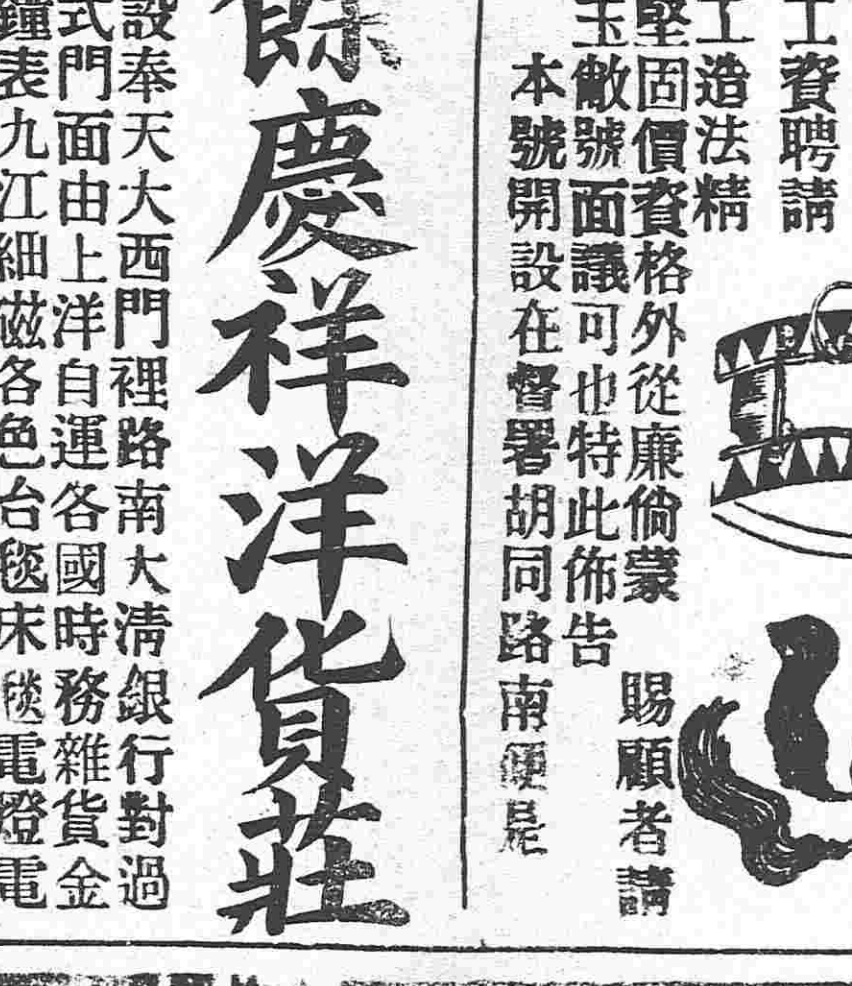 工資聘請
工造法精
堅固價資格外從廉倘蒙　賜顧者請
玉敝號面議可也特此佈告
本號開設在督署胡同路南便是
餘慶祥洋貨莊
設奉天大西門裡路南大清銀行對過
式門面由上洋自運各國時務雜貨金
鐘表九江細磁各色台毯床毯電燈電